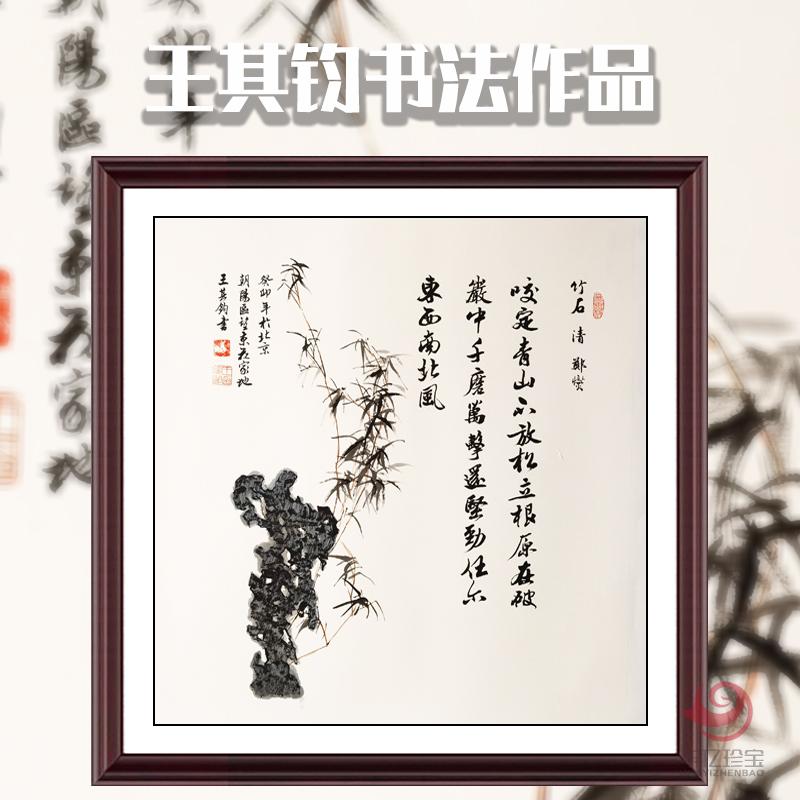 王其钧书法作品
竹石 清 鄭燮
咬定青山不放松立根原在破
巖中千磨萬擊還堅勁任尔
東西南北風
癸卯年於北京
朝陽區望京花家地
王其鈞書
朝陽區望京花家地
亿珍宝
YIZHENBAO